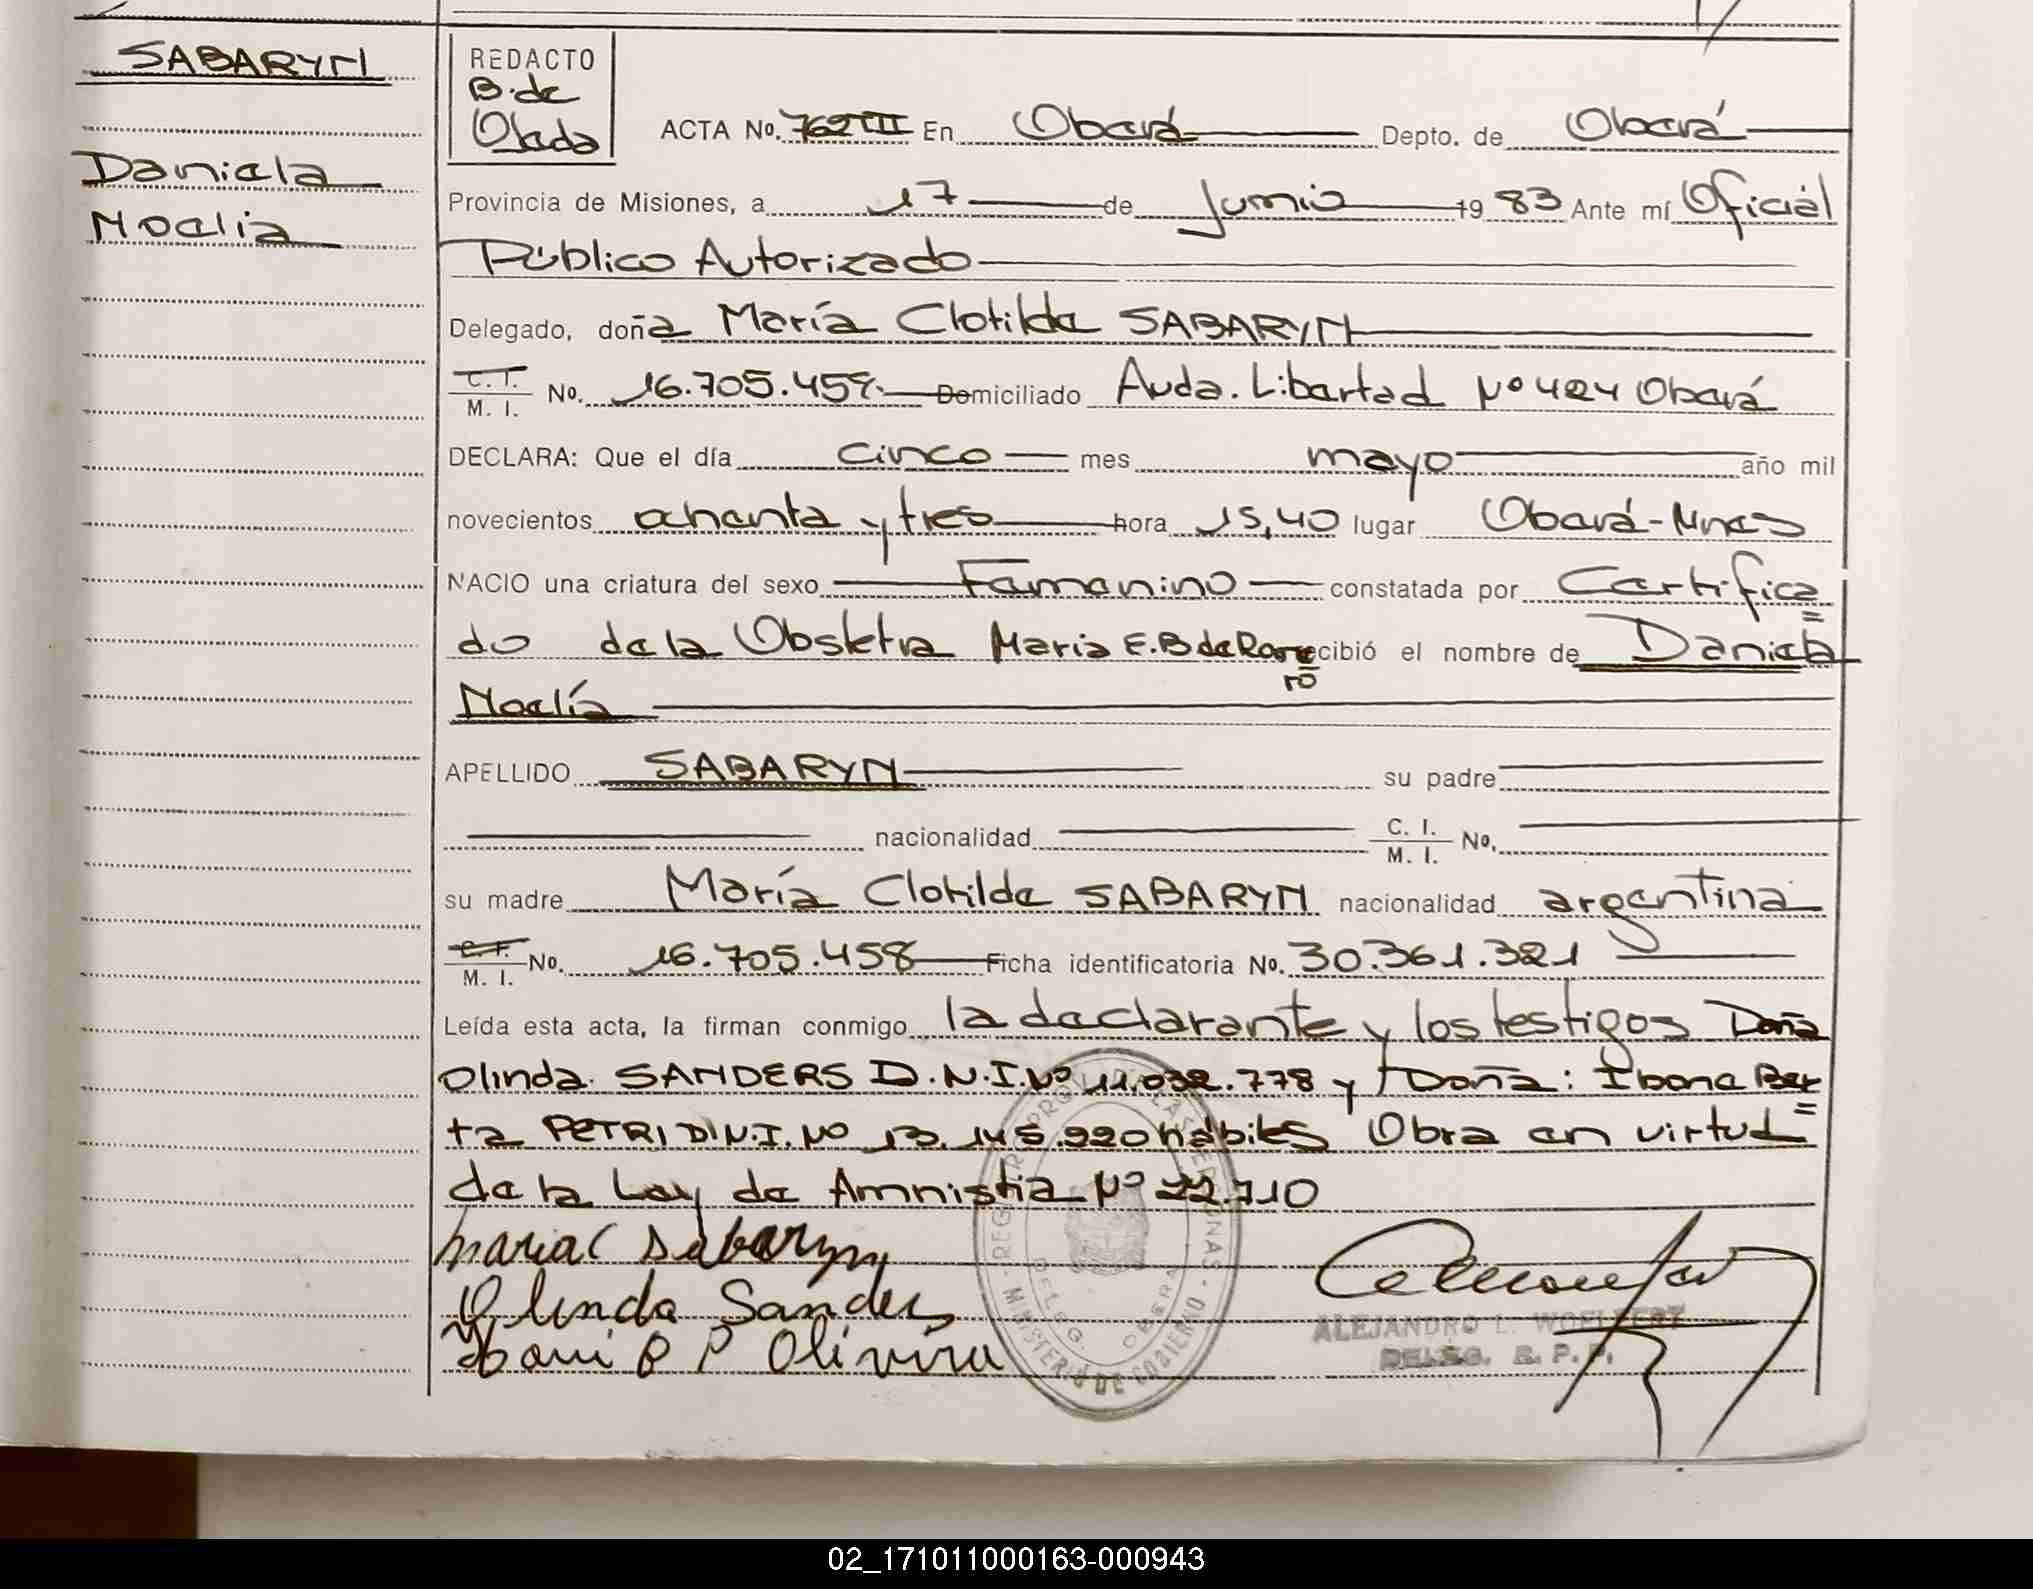 SABARYN
Daniela
Noelia
REDACTO
B. de
Ojeda
ACTA No. 762 TIII En Oberá Depto. de Oberá
Provincia de Misiones, a 17 de Junio 19 83 Ante mí Oficial
Público Autorizado
Delegado, doña María Clotilde SABARYN
C. I. M. I. No. 16.705.458. Domiciliado Avda. Libertad Nº 424 Oberá
DECLARA: Que el día cinco mes mayo año mil
novecientos ochenta y tres hora 15,40 lugar Oberá-Mnes
NACIO una criatura del sexo Femenino constatada por Certifica=
do de la Obstetra Maria E.B de Rome=ro recibió el nombre de Daniela
Noelía
APELLIDO SABARYN su padre
nacionalidad C. I. M. I. No.
su madre María Clotilde SABARYN nacionalidad argentina
C. I. M. I. No. 16.705.458 Ficha identificatoria No. 30.361.321
Leída esta acta, la firman conmigo la declarante y los testigos Doña
Olinda SANDERS D.N.I.Nº 11.032.778 y Doña: Ibone Ber=
ta PETRI D.N.I. Nº 13.145.220 hábiles Obra en virtud
de la Ley de Amnistia Nº 22.710
Maria C Sabaryn
Olinda Sanders
B P Olivira
REGISTRO PROVINCIAL DE LAS PERSONAS
DELEG. OBERA
MINISTERIO DE GOBIERNO
ALEJANDRO L. WOELFERT
DELEG. R. P. P.
02_171011000163-000943